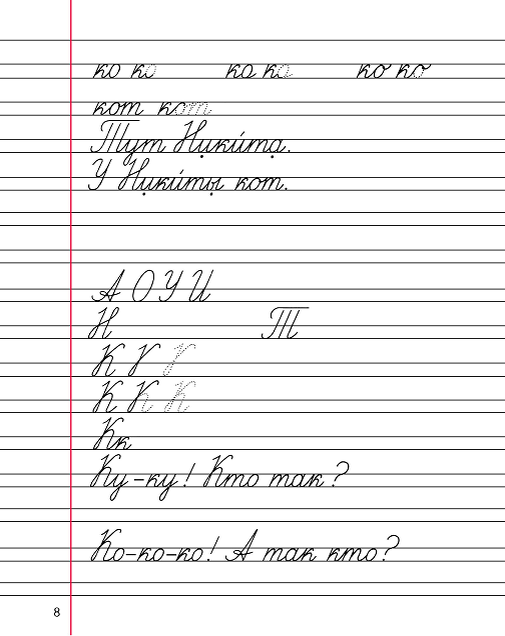 ко ко ка ка ко ко
кот кот
Тут Ники́та.
У Ники́ты кот.
А О У И
Н Т
К К К
К К К
Кк
Ку-ку! Кто так?
Ко-ко-ко! А так кто?
8